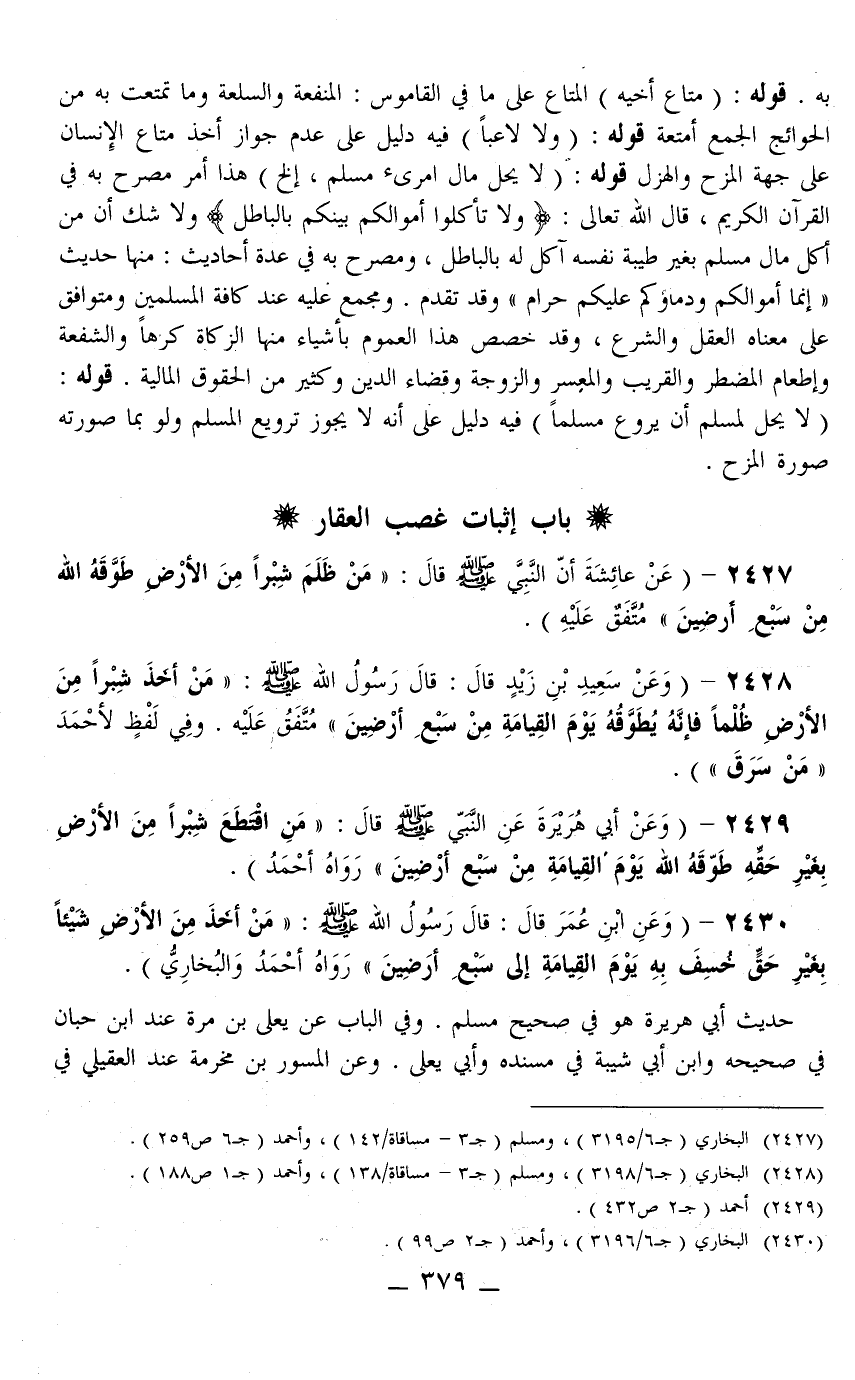 به . قوله : ( متاع أخيه ) المتاع على ما في القاموس : المنفعة والسلعة وما تمتعت به من
الحوائج الجمع أمتعة قوله : ( ولا لاعباً ) فيه دليل على عدم جواز أخذ متاع الإنسان
على جهة المزح والهزل قوله : ( لا يحل مال امرىء مسلم ، إلخ ) هذا أمر مصرح به في
القرآن الكريم ، قال الله تعالى : ﴿ ولا تأكلوا أموالكم بينكم بالباطل ﴾ ولا شك أن من
أكل مال مسلم بغير طيبة نفسه آكل له بالباطل ، ومصرح به في عدة أحاديث : منها حديث
« إنما أموالكم ودماؤكم عليكم حرام » وقد تقدم . ومجمع عليه عند كافة المسلمين ومتوافق
على معناه العقل والشرع ، وقد خصص هذا العموم بأشياء منها الزكاة كرهاً والشفعة
وإطعام المضطر والقريب والمعسر والزوجة وقضاء الدين وكثير من الحقوق المالية . قوله :
( لا يحل لمسلم أن يروع مسلماً ) فيه دليل على أنه لا يجوز ترويع المسلم ولو بما صورته
صورة المزح .
✷ باب إثبات غصب العقار ✷
٢٤٢٧ – ( عَنْ عائِشَةَ أنّ النَّبِيَّ ﷺ قالَ : « مَنْ ظَلَمَ شِبْراً مِنَ الأرْضِ طَوَّقَهُ الله
مِنْ سَبْعِ أَرضِينَ » مُتَّفَقٌ عَلَيْهِ ) .
٢٤٢٨ – ( وَعَنْ سَعِيدِ بْنِ زَيْدٍ قالَ : قالَ رَسُولُ الله ﷺ : « مَنْ أخَذَ شِبْراً مِنَ
الأرْضِ ظُلْماً فإنَّهُ يُطَوَّقُهُ يَوْمَ القِيامَةِ مِنْ سَبْعِ أرْضِينَ » مُتَّفَقُ عَلَيْه . وفِي لَفْظٍ لأحْمَدَ
« مَنْ سَرَقَ » ) .
٢٤٢٩ – ( وَعَنْ أبي هُرَيْرَةَ عَنِ النَّبَيّ ﷺ قالَ : « مَنِ اقْتَطَعَ شِبْراً مِنَ الأرْضِ
بِغَيْرِ حَقِّهِ طَوّقَهُ الله يَوْمَ القِيامَةِ مِنْ سَبْعِ أرْضِينَ » رَوَاهُ أحْمَدُ ) .
٢٤٣٠ – ( وَعَنِ ابْنِ عُمَرَ قالَ : قالَ رَسُولُ الله ﷺ : « مَنْ أخَذَ مِنَ الأرْضِ شَيْئاً
بِغَيْرِ حَقٍّ خُسِفَ بِهِ يَوْمَ القِيامَةِ إلى سَبْعِ أرَضِينَ » رَوَاهُ أحْمَدُ وَالبُخارِيُّ ) .
حديث أبي هريرة هو في صحيح مسلم . وفي الباب عن يعلى بن مرة عند ابن حبان
في صحيحه وابن أبي شيبة في مسنده وأبي يعلى . وعن المسور بن مخرمة عند العقيلي في
(٢٤٢٧) البخاري ( جـ٣١٩٥/٦ ) ، ومسلم ( جـ٣ – مساقاة/١٤٢ ) ، وأحمد ( جـ٦ ص٢٥٩ ) .
(٢٤٢٨) البخاري ( جـ٣١٩٨/٦ ) ، ومسلم ( جـ٣ – مساقاة/١٣٨ ) ، وأحمد ( جـ١ ص١٨٨ ) .
(٢٤٢٩) أحمد ( جـ٢ ص٤٣٢ ) .
(٢٤٣٠) البخاري ( جـ٣١٩٦/٦ ) ، وأحمد ( جـ٢ ص٩٩ ) .
– ٣٧٩ –